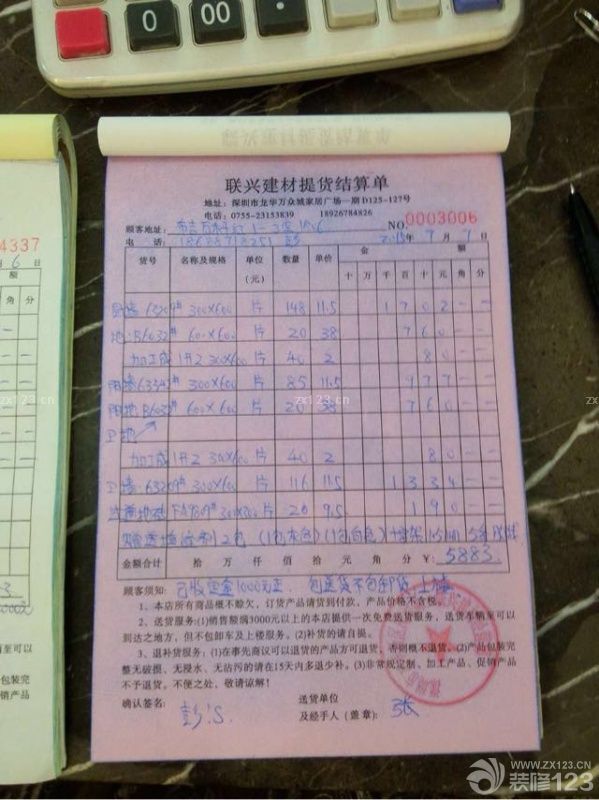 联兴建材提货结算单
地址:深圳市龙华万众城家居广场一期D125-127号
电话:0755-23153839 18926784826
顾客地址: NO. 0003006
电 话: 18628718251 2015年9月7日
货号 名称及规格 单位(元) 数量 单价 金 额
十 万 千 百 十 元 角 分
墙6320# 300×600 片 148 11.5 1 7 0 2 — —
地:B6032# 600×600 片 20 38 7 6 0 — —
加工成1开2 300×600 片 40 2 8 0 — —
阳墙6334# 300×600 片 85 11.5 9 7 7 — —
阳地B6032# 600×600 片 20 38 7 6 0 — —
卫地
加工成1开2 300×600 片 40 2 8 0 — —
卫墙:6320# 300×600 片 116 11.5 1 3 3 4 — —
300×300 片 20 9.5 1 9 0 — —
2包
金额合计 拾 万 仟 佰 拾 元 角 分 ¥: 5883
顾客须知: 已收定金1000元正 包送货不包卸货上楼
1、本店所有商品概不赊欠,订货产品请货到付款,产品价格不含税。
2、送货服务:(1)销售额满3000元以上的本店提供一次免费送货服务,送货车辆至可以
到达之地方,但不包卸车及上楼服务。(2)补货的请自提。
3、退补货服务:(1)在事先商议可以退货的产品方可退货,否则概不退货。(2)产品包装完
整无破损、无浸水、无沾污的请在15天内多退少补。(3)非常规定制、加工产品、促销产品
不予退货,不便之处,敬请谅解!
确认签名: 送货单位
及经手人(盖章): 张
4337
0
00
zx123.cn
WWW.ZX123.CN
装修123